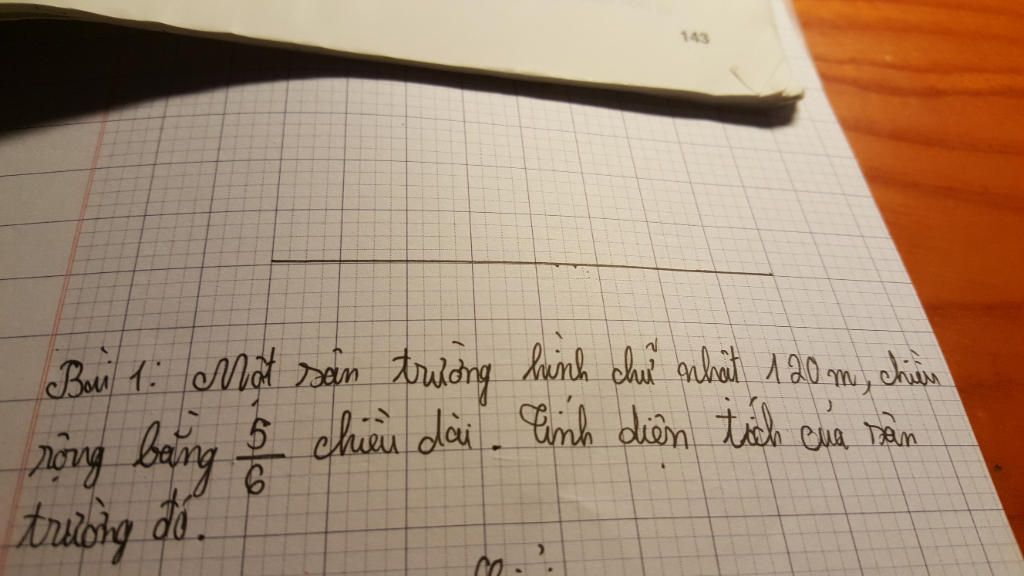 143
Bài 1: Một sân trường hình chữ nhật 120 m, chiều
rộng bằng 5/6 chiều dài. Tính diện tích của sân
trường đó.